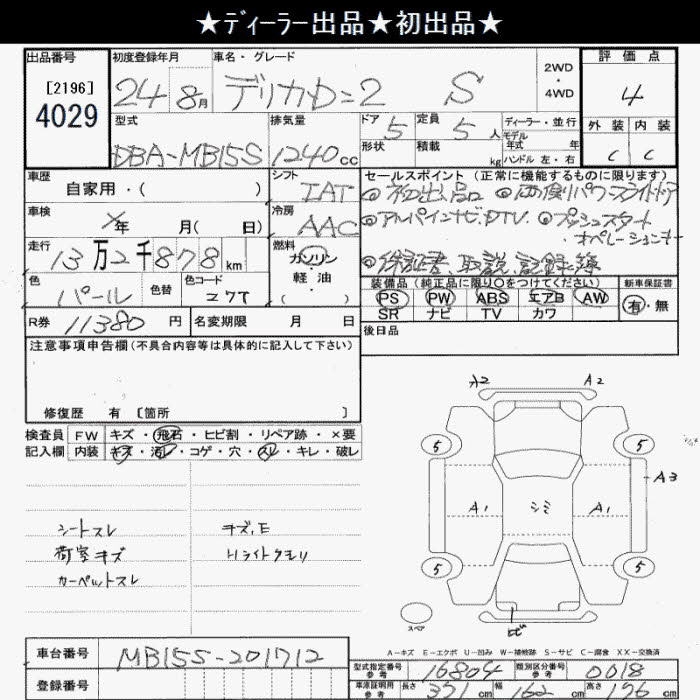 ★ディーラー出品★初出品★
出品番号
[2196]
4029
初度登録年月
24 8月
車名・グレード
デリカD:2 S
2WD
・
4WD
評価点
4
外装 内装
C C
型式
DBA-MB15S
排気量
1240cc
ドア 5
形状
定員 5人
積載 kg
ディーラー・並行
モデル
年式 年
ハンドル 左・右
車歴
自家用・( )
シフト
IAT
車検
年 月( 日)
冷房
AAC
走行
13万2千878km
燃料
ガソリン
・
軽油
( )
色
パール
色替
色コード
Z7T
R券 11380円
名変期限 月 日
セールスポイント(正常に機能するものに限ります)
◎初出品 ◎両側パワースライドドア
◎アルパインナビDTV ◎プッシュスタート
・オペレーションキー
◎保証書、取説、記録簿
装備品(純正品に限り○をつけてください)
PS PW ABS エアB AW
SR ナビ TV カワ
新車保証書
有・無
後日品
注意事項申告欄(不具合内容等は具体的に記入して下さい)
修復歴 有 [箇所 ]
検査員
記入欄
FW キズ・飛石・ヒビ割・リペア跡・×要
内装 キズ・汚レ・コゲ・穴・スレ・キレ・破レ
シートスレ
荷室キズ
カーペットスレ
キズ、E
Hライトクモリ
A2 A2
5 5
A3
A1 シミ A1
5 5
スペア
A-キズ E-エクボ U-凹み W-補修跡 S-サビ C-腐食 XX-交換済
車台番号
MB15S-201712
登録番号
型式指定番号
参考
16804
類別区分番号
参考
0018
車庫証明用
参考
長さ 371cm
幅 162cm
高さ 196cm